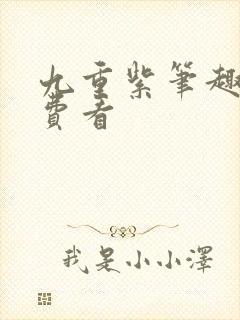 九重紫筆趣
費看
我是小小澤